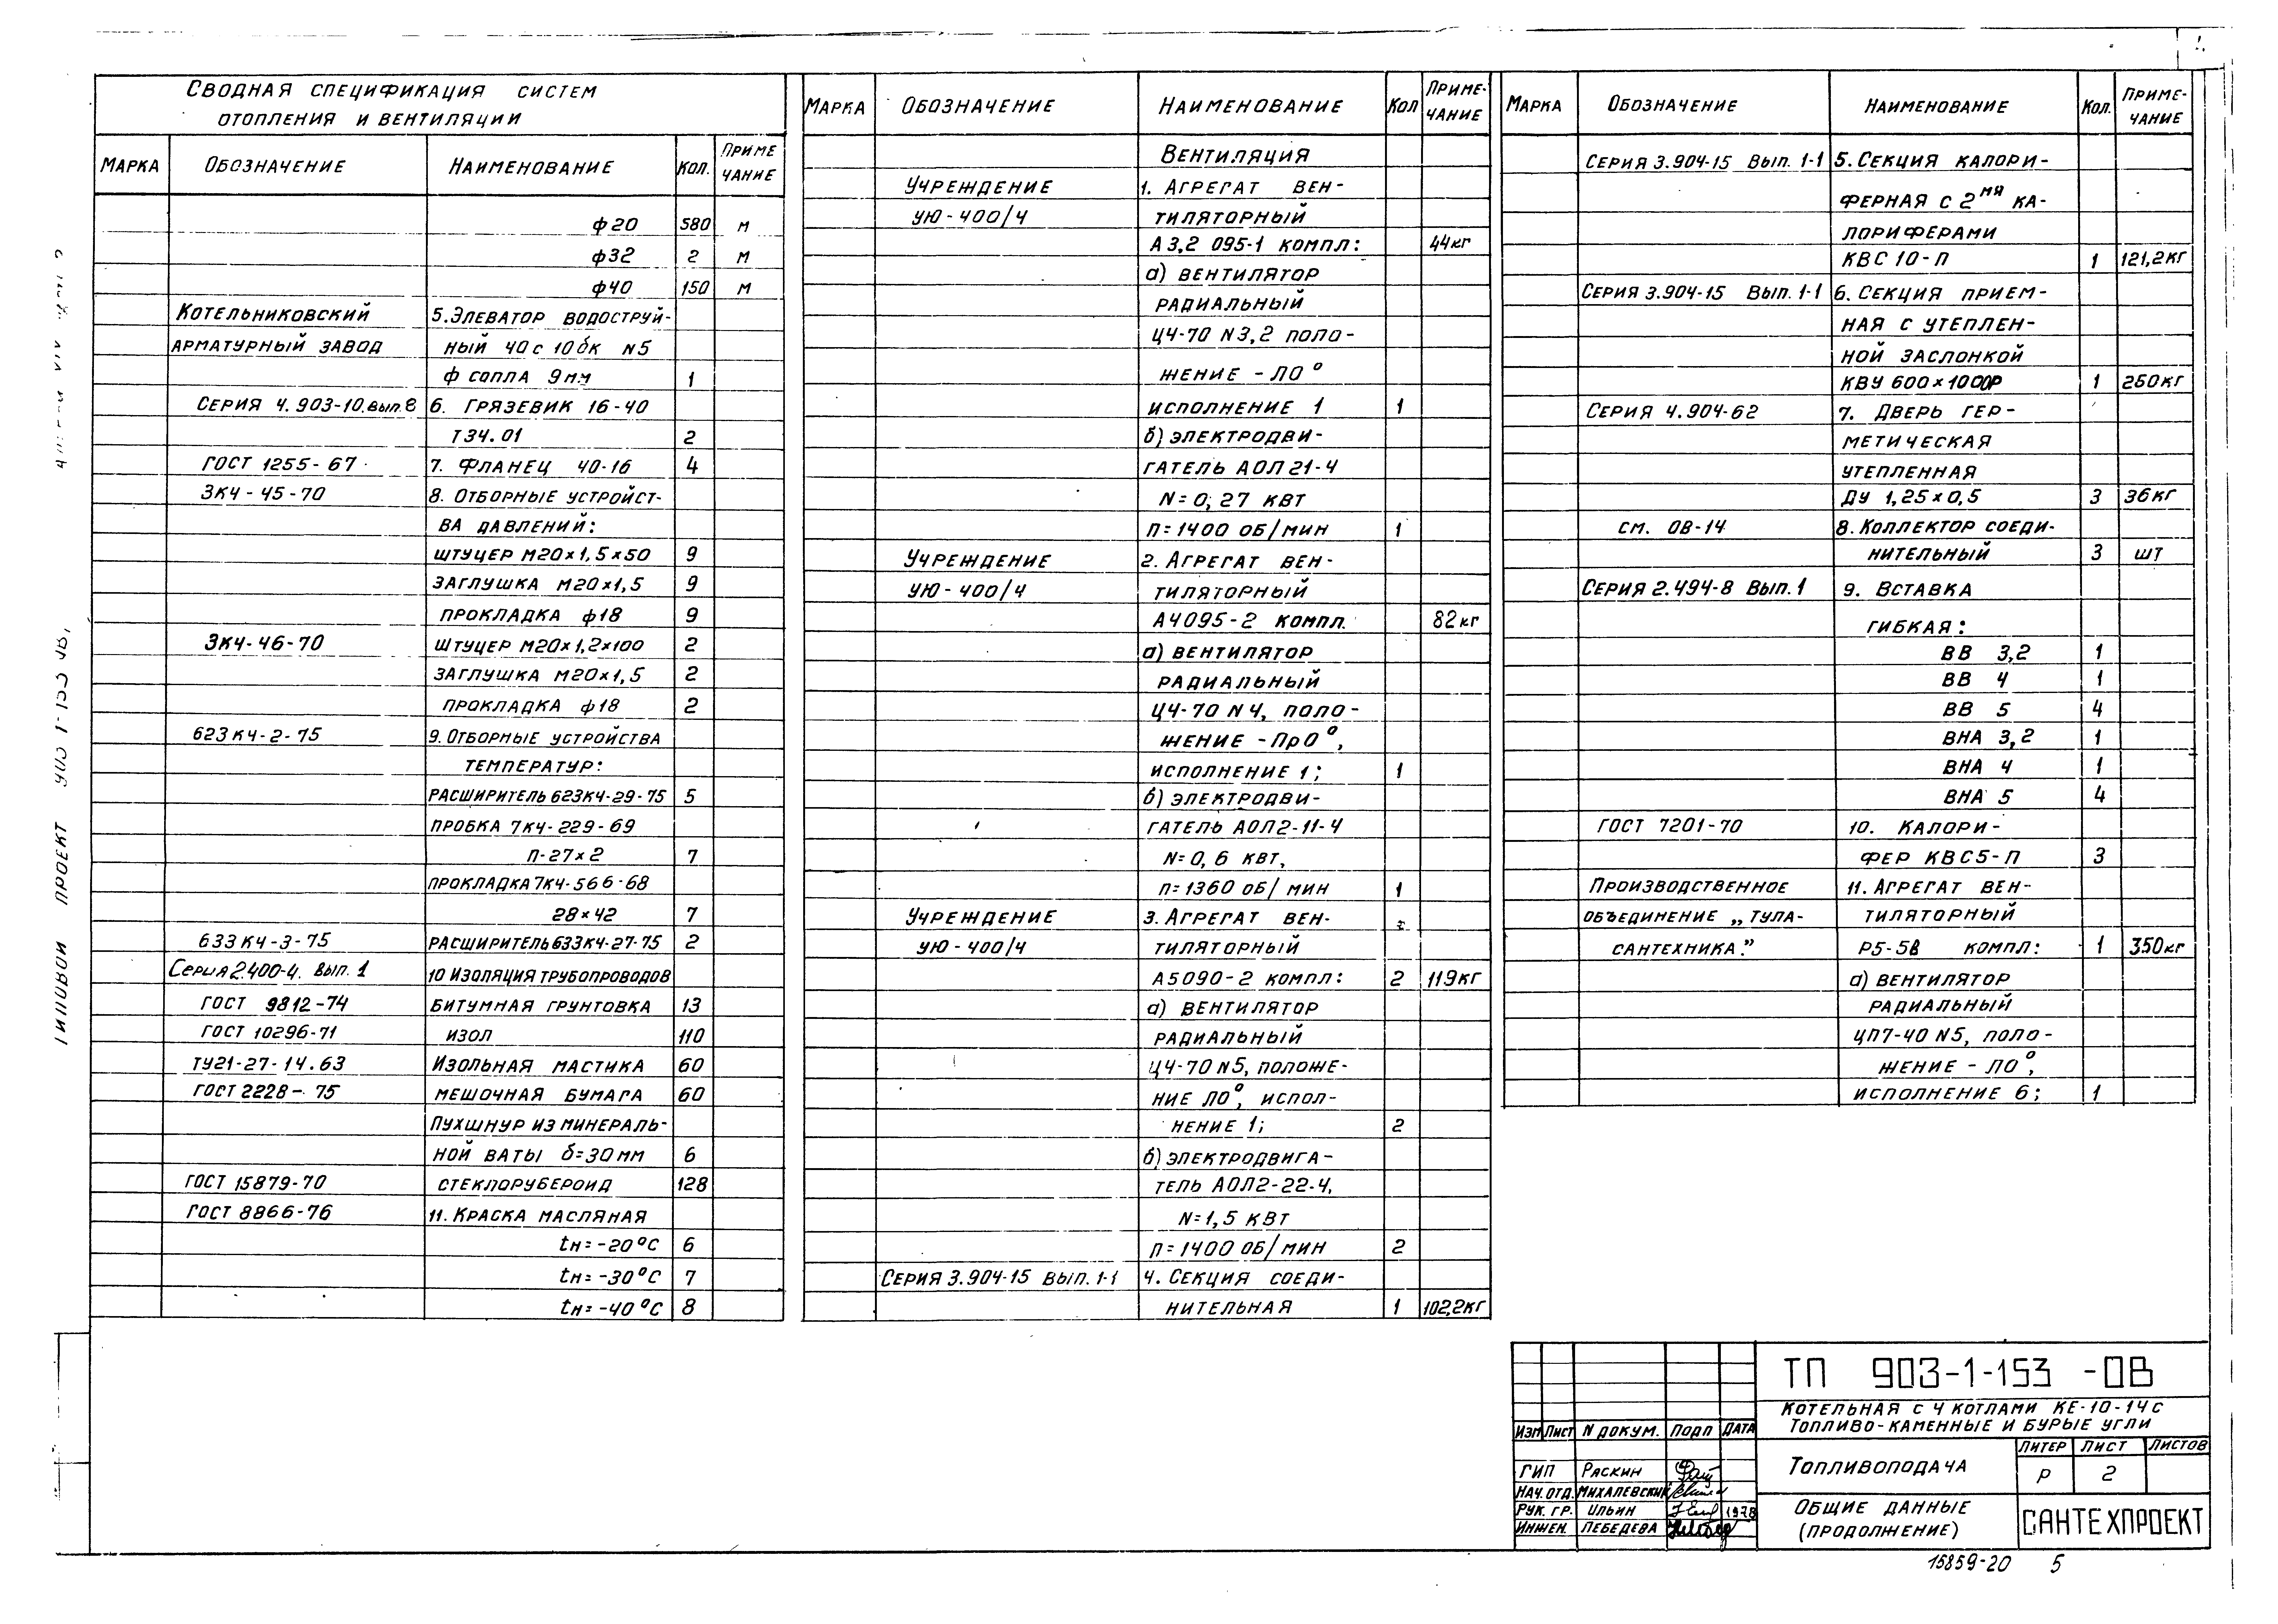 Сводная спецификация систем
отопления и вентиляции
Марка Обозначение Наименование Кол. Приме
чание
ф20 580 м
ф32 2 м
ф40 150 м
Котельниковский 5. Элеватор водоструй-
арматурный завод ный 40с10бк N5
ф сопла 9мм 1
Серия 4.903-10. вып. 8 6. Грязевик 16-40
Т34.01 2
ГОСТ 1255-67 7. Фланец 40-16 4
ЗК4-45-70 8. Отборные устройст-
ва давлений:
штуцер М20×1,5×50 9
заглушка М20×1,5 9
прокладка ф18 9
ЗК4-46-70 штуцер М20×1,2×100 2
заглушка М20×1,5 2
прокладка ф18 2
623К4-2-75 9. Отборные устройства
температур:
расширитель 623К4-29-75 5
пробка 7К4-229-69
П-27×2 7
прокладка 7К4-566-68
28×42 7
633К4-3-75 расширитель 633К4-27-75 2
Серия 2.400-4. Вып. 1 10 Изоляция трубопроводов
ГОСТ 9812-74 битумная грунтовка 13
ГОСТ 10296-71 изол 110
ТУ21-27-14.63 Изольная мастика 60
ГОСТ 2228-75 мешочная бумага 60
Пухшнур из минераль-
ной ваты б=30мм 6
ГОСТ 15879-70 стеклорубероид 128
ГОСТ 8866-76 11. Краска масляная
tн=-20°С 6
tн=-30°С 7
tн=-40°С 8
Марка Обозначение Наименование Кол Приме-
чание
Вентиляция
Учреждение 1. Агрегат вен-
УЮ-400/4 тиляторный
А3,2 095-1 компл: 44кг
а) вентилятор
радиальный
Ц4-70 N3,2 поло-
жение - ЛО°
исполнение 1 1
б) электродви-
гатель АОЛ 21-4
N=0,27 кВт
п=1400 об/мин 1
Учреждение 2. Агрегат вен-
УЮ-400/4 тиляторный
А4095-2 компл. 82кг
а) вентилятор
радиальный
Ц4-70 N4, поло-
жение - ПрО°,
исполнение 1; 1
б) электродви-
гатель АОЛ2-11-4
N=0,6 кВт,
п=1360 об/мин 1
Учреждение 3. Агрегат вен-
УЮ-400/4 тиляторный
А5090-2 компл: 2 119кг
а) вентилятор
радиальный
Ц4-70 N5, положе-
ние ЛО°, испол-
нение 1; 2
б) электродвига-
тель АОЛ2-22-4,
N=1,5 кВт
п=1400 об/мин 2
Серия 3.904-15 Вып. 1-1 4. Секция соеди-
нительная 1 102,2кг
Марка Обозначение Наименование Кол. Приме-
чание
Серия 3.904-15 Вып. 1-1 5. Секция калори-
ферная с 2мя ка-
лориферами
КВС 10-П 1 121,2кг
Серия 3.904-15 Вып. 1-1 6. Секция прием-
ная с утеплен-
ной заслонкой
КВУ 600×1000Р 1 250кг
Серия 4.904-62 7. Дверь гер-
метическая
утепленная
ДУ 1,25×0,5 3 36кг
см. ОВ-14 8. Коллектор соеди-
нительный 3 шт
Серия 2.494-8 Вып. 1 9. Вставка
гибкая:
ВВ 3,2 1
ВВ 4 1
ВВ 5 4
ВНА 3,2 1
ВНА 4 1
ВНА 5 4
ГОСТ 7201-70 10. Калори-
фер КВС5-П 3
Производственное 11. Агрегат вен-
объединение „Тула- тиляторный
сантехника." Р5-5В компл: 1 350кг
а) вентилятор
радиальный
ЦП7-40 N5, поло-
жение - ЛО°,
исполнение 6; 1
ТП 903-1-153 -ОВ
Котельная с 4 котлами КЕ-10-14с
Топливо-каменные и бурые угли
Изм Лист N докум. Подп Дата
Топливоподача
Литер Лист Листов
Р 2
ГИП Раскин
Нач. отд. Михалевский
Рук. гр. Ильин 1978
Инжен. Лебедева
Общие данные
(продолжение)
САНТЕХПРОЕКТ
15859-20 5
Типовой проект